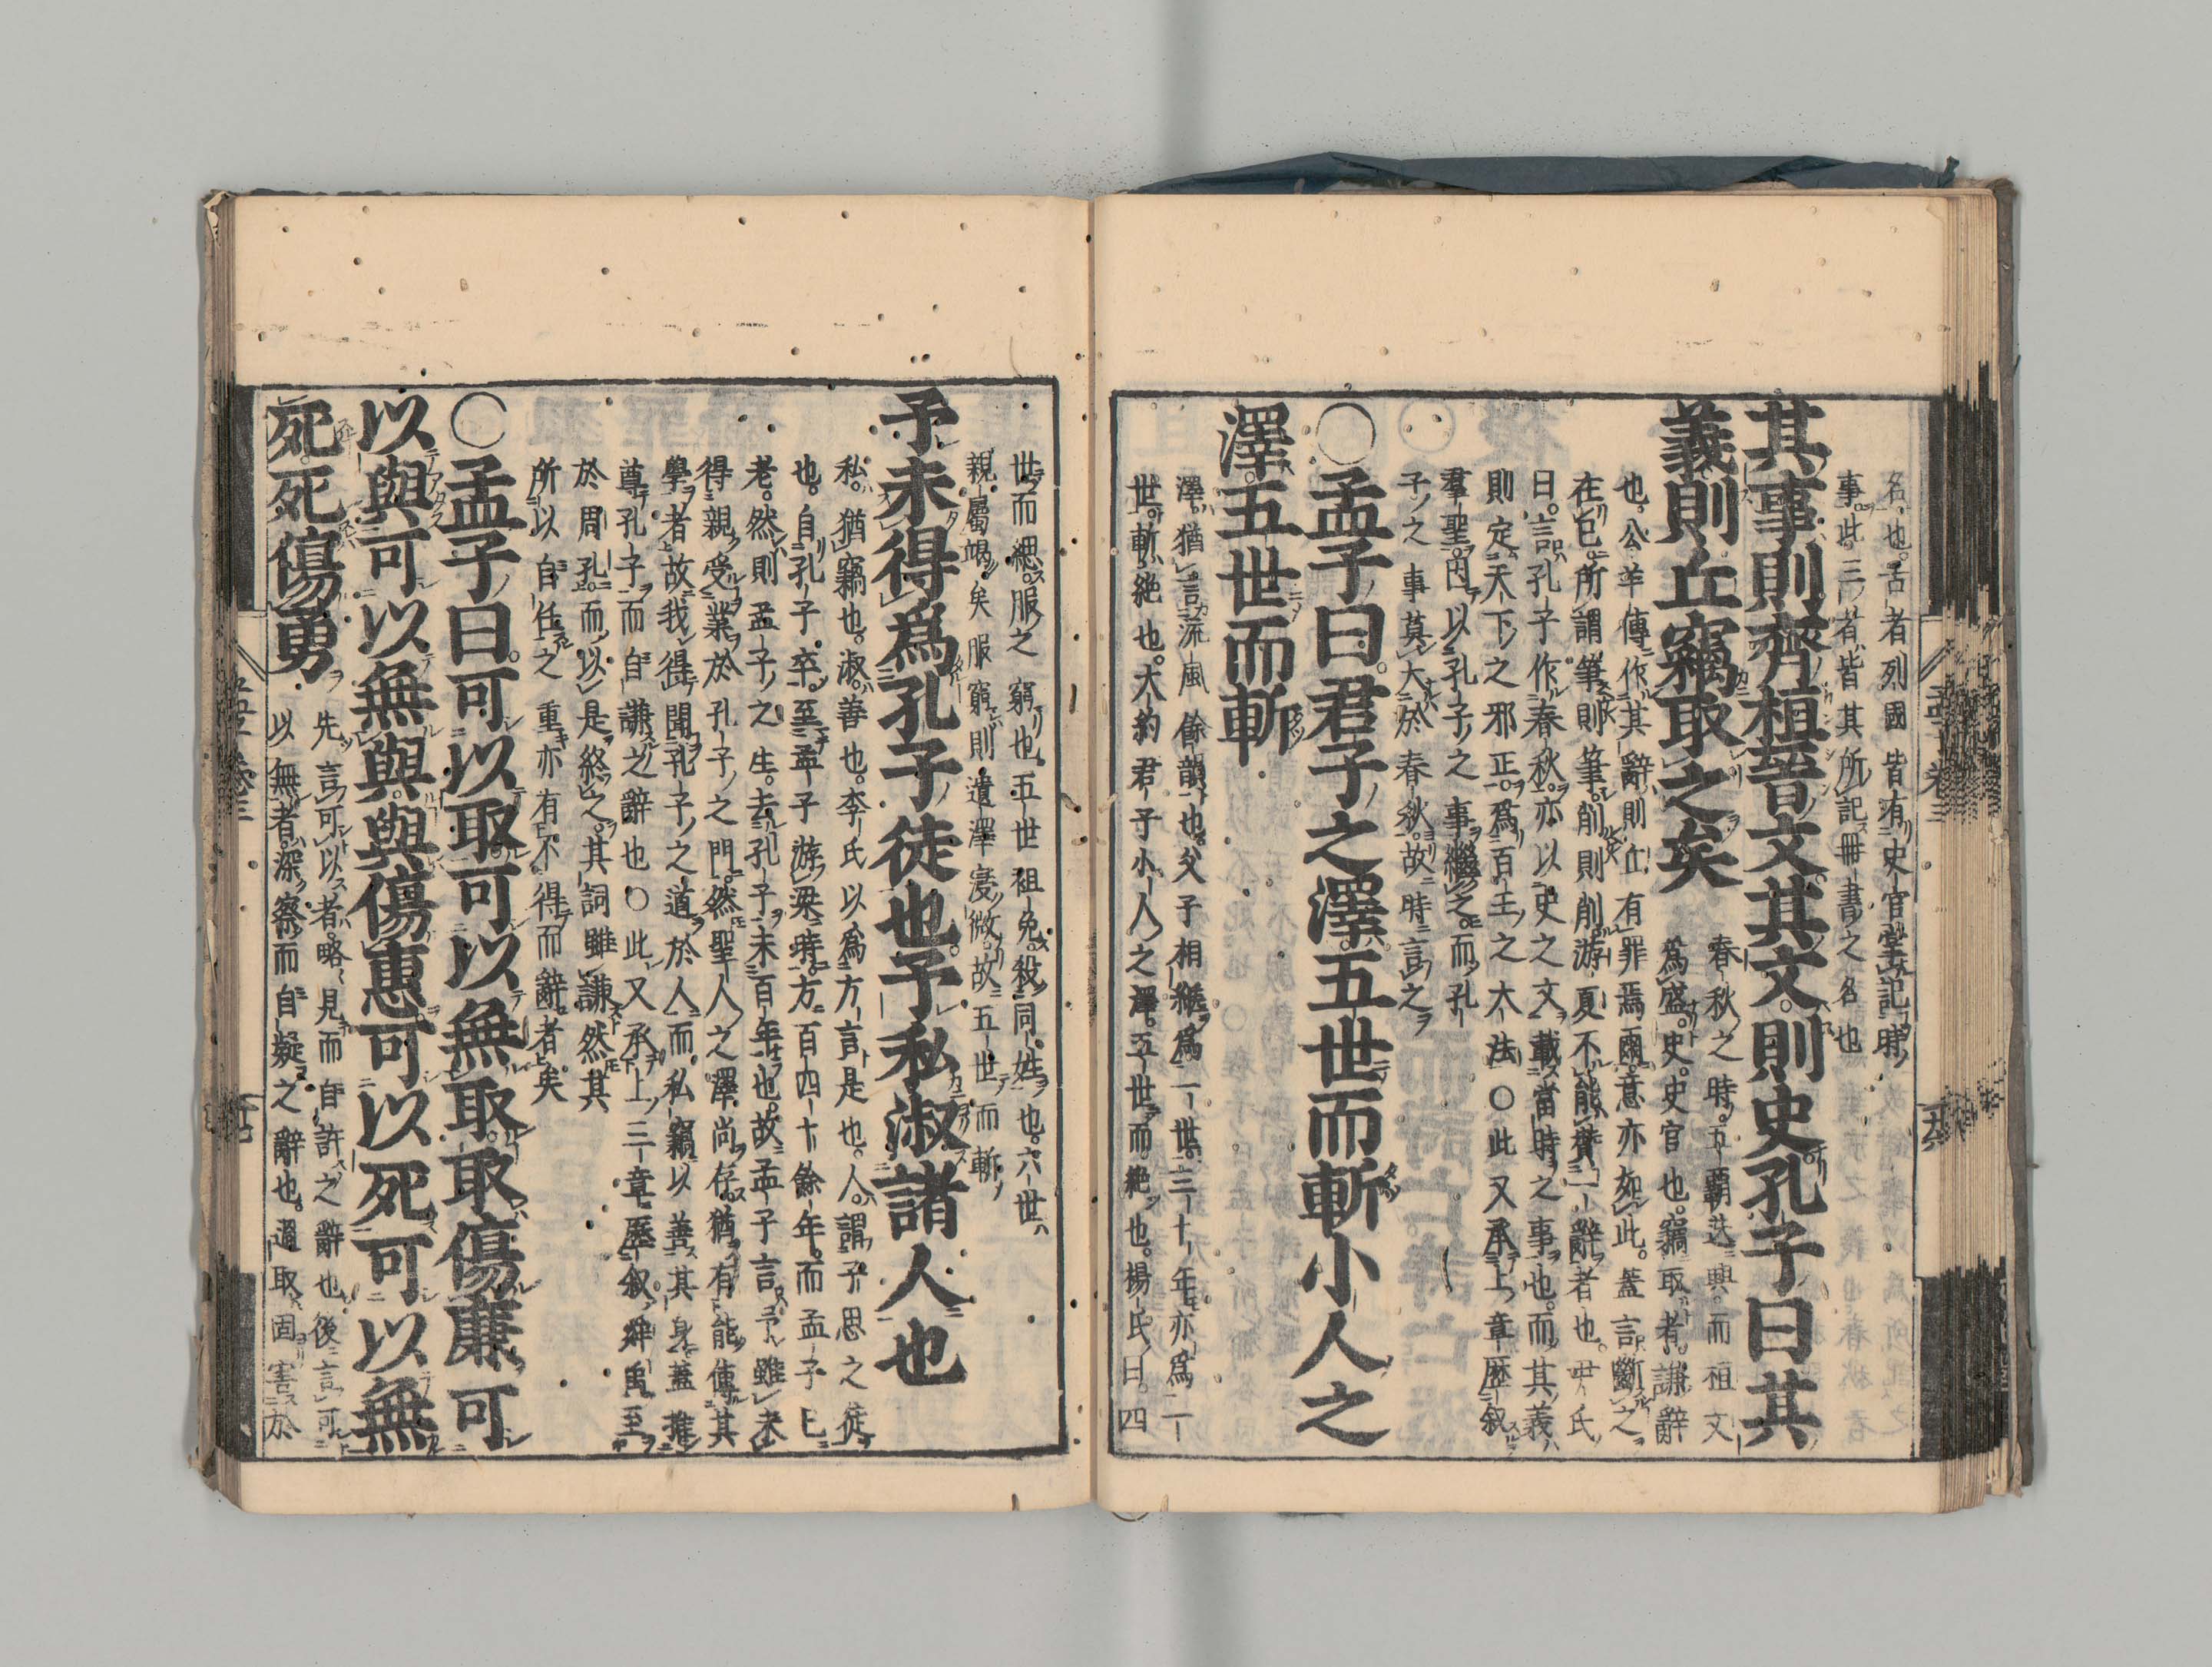 名也古者列國皆有史官掌記時
事此三者皆其所記冊書之名也
其事則齊桓晉文其文則史孔子曰其
義則丘竊取之矣
春秋之時五霸迭興而祖文
爲盛史史官也竊取者謙辭
也公羊傳作其辭則丘有罪焉爾意亦如此蓋言斷之
在己所謂筆則筆削則削游夏不能贊一辭者也尹氏
曰言孔子作春秋亦以史之文載當時之事也而其義
則定天下之邪正爲百王之大法○此又承上章歷叙
羣聖因以孔子之事繼之而孔
子之事莫大於春秋故時言之
○孟子曰君子之澤五世而斬小人之
澤五世而斬
澤猶言流風餘韻也父子相繼爲一世三十年亦爲一
世斬絶也大約君子小人之澤五世而絶也楊氏曰四
世而緦服之窮也五世祖免殺同姓也六世
親屬竭矣服窮則遺澤寖微故五世而斬
予未得爲孔子徒也予私淑諸人也
私猶竊也淑善也李氏以爲方言是也人謂子思之徒
也自孔子卒至孟子游梁時方百四十餘年而孟子已
老然則孟子之生去孔子未百年也故孟子言予雖未
得親受業於孔子之門然聖人之澤尚存猶有能傳其
學者故我得聞孔子之道於人而私竊以善其身蓋推
尊孔子而自謙之辭也○此又承上三章歷叙舜禹至
於周孔而以是終之其詞雖謙然其
所以自任之重亦有不得而辭者矣
○孟子曰可以取可以無取取傷廉可
以與可以無與與傷惠可以死可以無
死死傷勇
先言可以者略見而自許之辭也後言可
以無者深察而自疑之辭也過取固害於